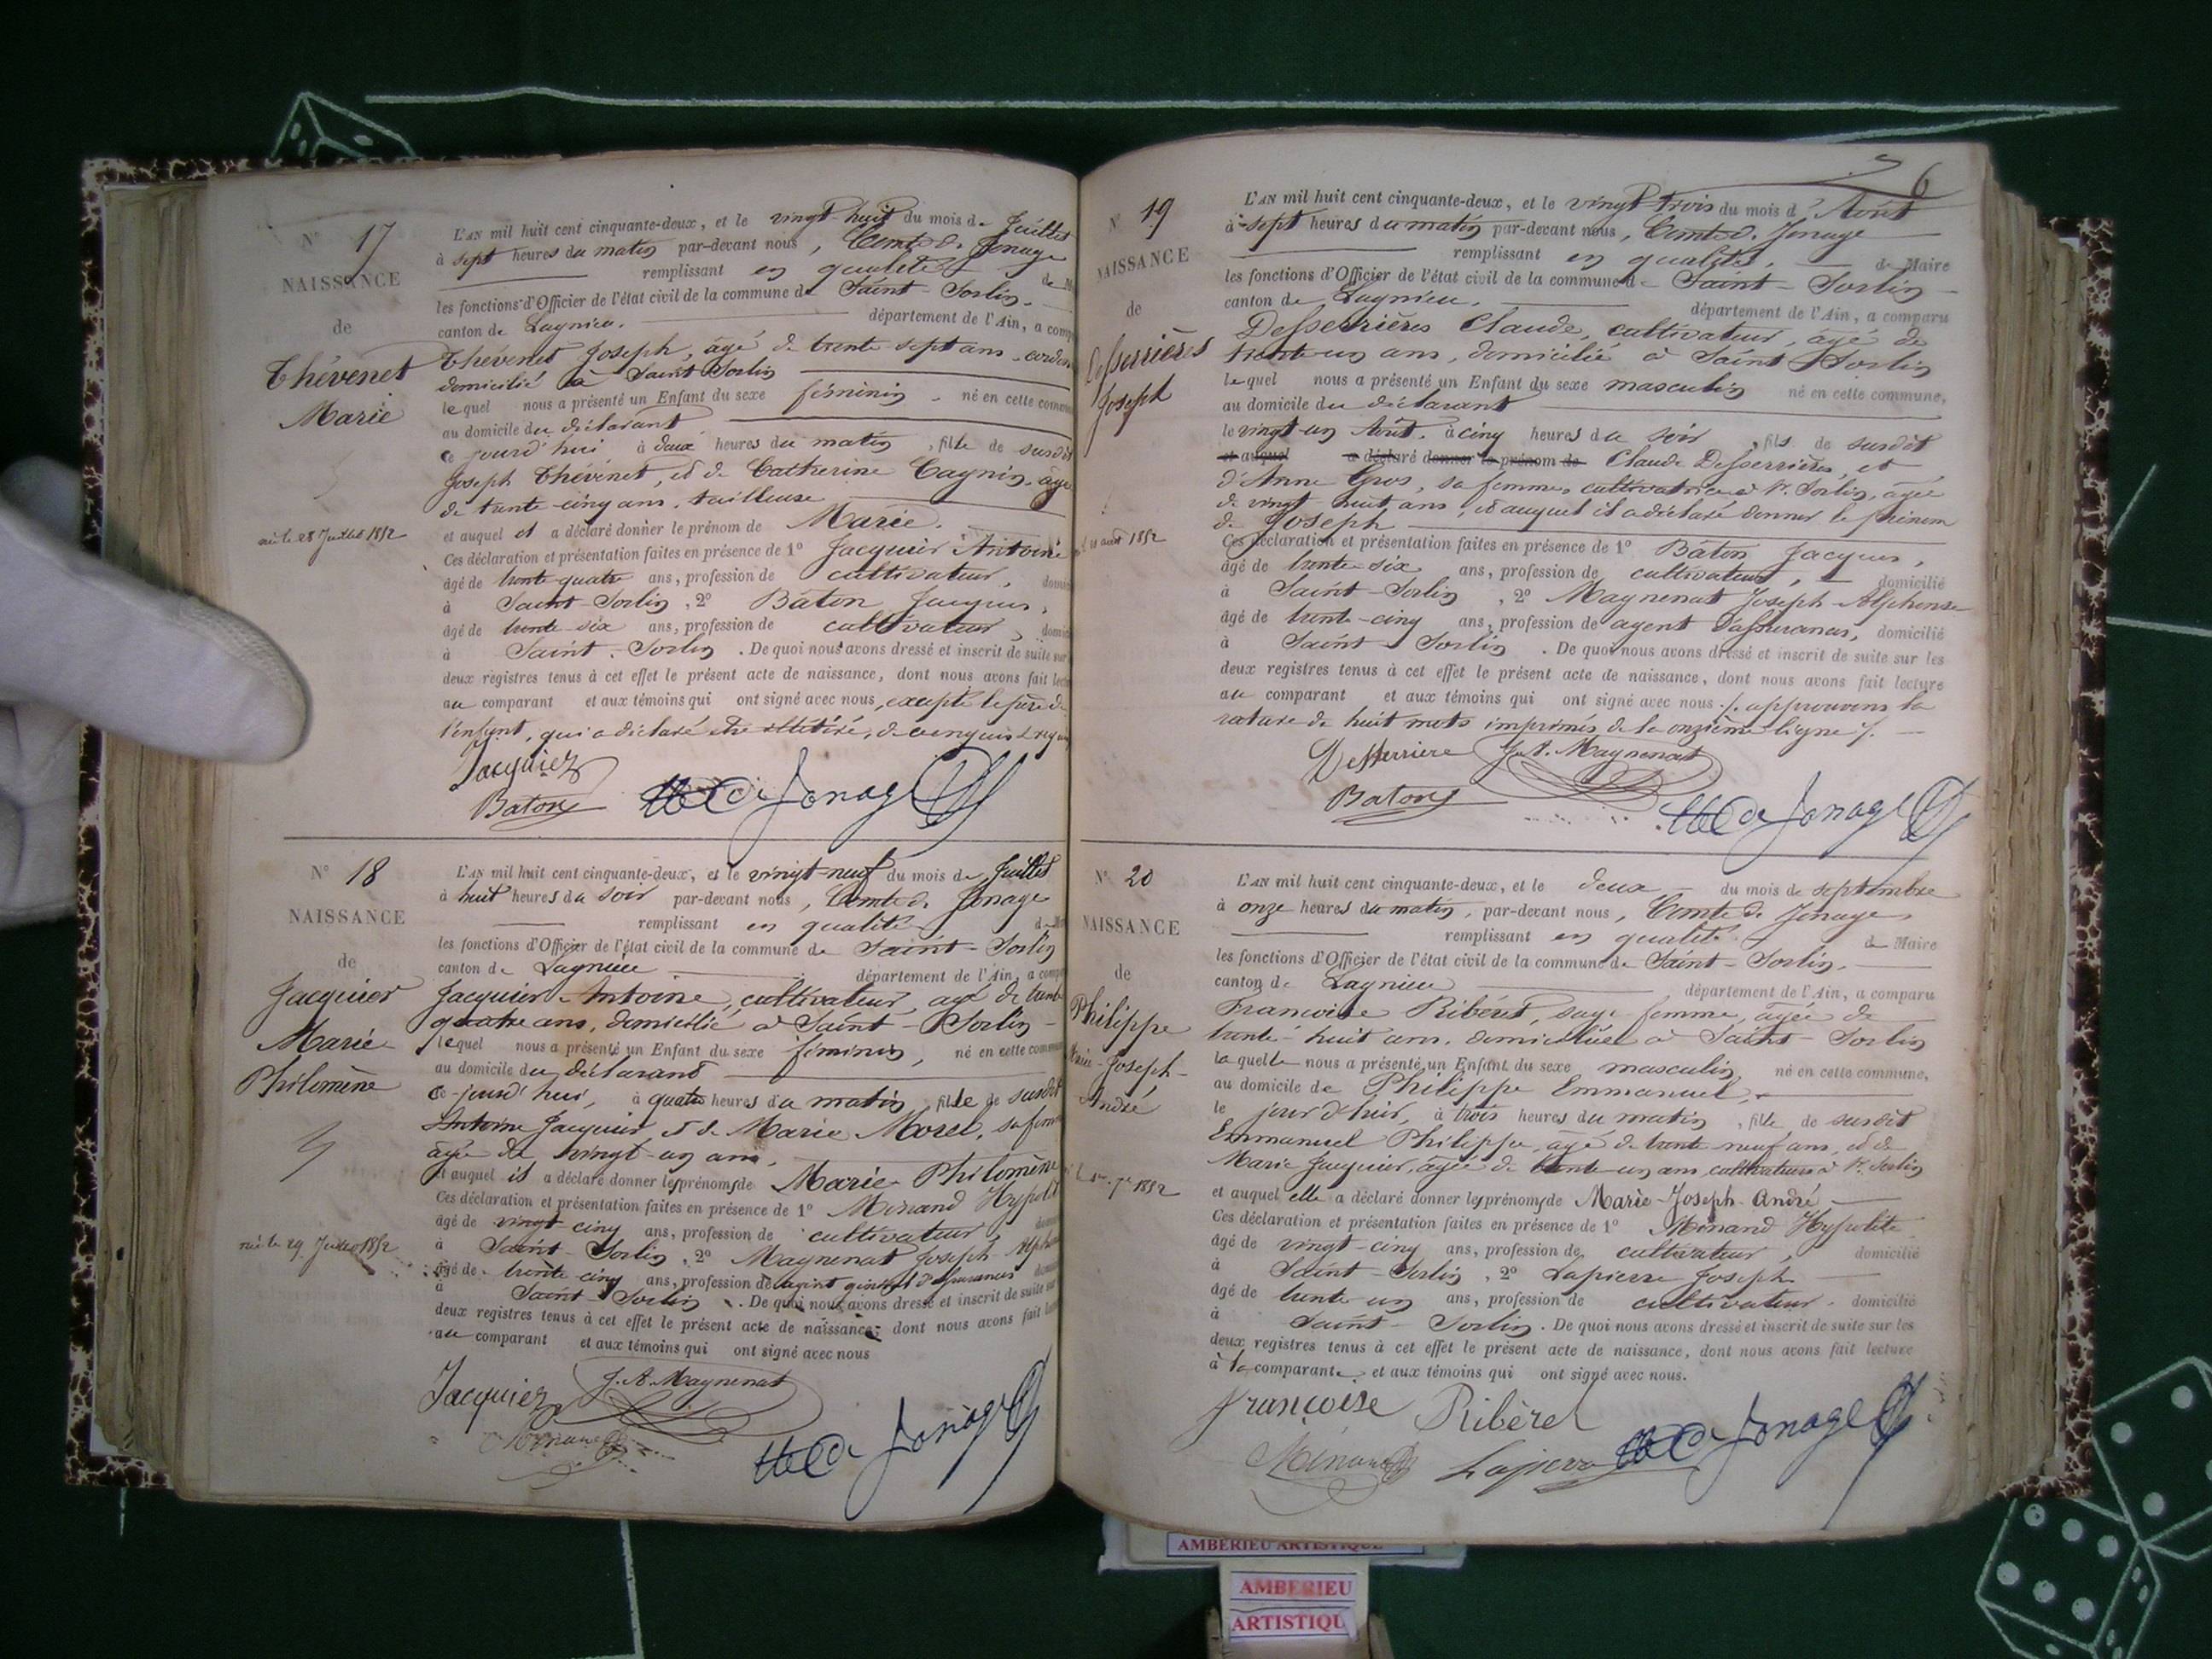 N° 17
NAISSANCE
de
Thévenet
Marie
né le 28 Juillet 1852
L'AN mil huit cent cinquante-deux, et le vingt huit du mois de Juillet
à sept heures du matin par-devant nous, Comte de Jonage
remplissant en qualité de
les fonctions d'Officier de l'état civil de la commune de Saint-Sorlin.
canton de Lagnieu. département de l'Ain, a comp
Thévenet Joseph, âgé de trente sept ans, cordon
domicilié à Saint Sorlin
lequel nous a présenté un Enfant du sexe féminin, né en cette commun
au domicile du déclarant
ce jourd'hui à deux heures du matin, fille de susdit
Joseph Thévenet, et de Catherine Cagnin, âgé
de trente cinq ans, tailleuse
et auquel il a déclaré donner le prénom de Marie.
Ces déclaration et présentation faites en présence de 1° Jacquier Antoine
âgé de trente-quatre ans, profession de cultivateur, domi
à Saint-Sorlin, 2° Bâton Jacques,
âgé de trente-six ans, profession de cultivateur, domic
à Saint-Sorlin. De quoi nous avons dressé et inscrit de suite sur
deux registres tenus à cet effet le présent acte de naissance, dont nous avons fait lect
au comparant et aux témoins qui ont signé avec nous, excepté le père de
l'enfant, qui a déclaré être illétéré, de ce enquis & requis
Jacquiez
Baton
Cte de Jonage
N° 18
NAISSANCE
de
Jacquier
Marie
Philomène
né le 29 Juillet 1852
L'AN mil huit cent cinquante-deux, et le vingt-neuf du mois de Juillet
à huit heures du soir par-devant nous, Comte de Jonage
remplissant en qualité de
les fonctions d'Officier de l'état civil de la commune de Saint-Sorlin
canton de Lagnieu département de l'Ain, a comp
Jacquier Antoine, cultivateur, agé de trente
quatre ans, domicilié à Saint-Sorlin
lequel nous a présenté un Enfant du sexe féminin, né en cette commun
au domicile du déclarant
ce-jourd'hui, à quatre heures du matin, fille de susdit
Antoine Jacquier & de Marie Morel, sa femme
âgée de vingt-un ans.
et auquel il a déclaré donner les prénoms de Marie Philomène
Ces déclaration et présentation faites en présence de 1° Minand Hypolit
âgé de vingt cinq ans, profession de cultivateur,
à Saint-Sorlin, 2° Magnenat Joseph Alpho
âgé de trente cinq ans, profession de agent général d'assurances
à Saint Sorlin. De quoi nous avons dressé et inscrit de suite sur
deux registres tenus à cet effet le présent acte de naissance, dont nous avons fait
au comparant et aux témoins qui ont signé avec nous
Jacquiez J. A. Magnenat
Minand
Cte de Jonage
6
N° 19
NAISSANCE
de
Desserrières
Joseph
21 août 1852
L'AN mil huit cent cinquante-deux, et le vingt trois du mois d'Août
à sept heures du matin par-devant nous, Comte de Jonage
remplissant en qualité, de Maire
les fonctions d'Officier de l'état civil de la commune de Saint-Sorlin
canton de Lagnieu. département de l'Ain, a comparu
Desserrières Claude, cultivateur, âgé de
trente-un ans, domicilié à Saint Sorlin
lequel nous a présenté un Enfant du sexe masculin né en cette commune,
au domicile du déclarant
le vingt-un Août, à cinq heures du soir, fils de susdit
et auquel a déclaré donner le prénom de Claude Desserrières, et
d'Anne Gros, sa femme, cultivatrice à St. Sorlin, âgée
de vingt huit ans, et auquel il a déclaré donner le prénom
de Joseph
Ces déclaration et présentation faites en présence de 1° Bâton Jacques,
âgé de trente-six ans, profession de cultivateur, domicilié
à Saint-Sorlin, 2° Magnenat Joseph-Alphonse
âgé de trente-cinq ans, profession de agent d'assurances, domicilié
à Saint Sorlin. De quoi nous avons dressé et inscrit de suite sur les
deux registres tenus à cet effet le présent acte de naissance, dont nous avons fait lecture
au comparant et aux témoins qui ont signé avec nous ./. approuvons la
rature de huit mots imprimés de la onzième ligne ./.
Desserriere J. A. Magnenat
Baton
Cte de Jonage
N° 20
NAISSANCE
de
Philippe
Marie-Joseph-
André
7e 1852
L'AN mil huit cent cinquante-deux, et le deux du mois de septembre
à onze heures du matin, par-devant nous, Comte de Jonage,
remplissant en qualité de Maire
les fonctions d'Officier de l'état civil de la commune de Saint-Sorlin.
canton de Lagnieu département de l'Ain, a comparu
Francoise Ribéret, sage femme, âgée de
trente-huit ans, domiciliée à Saint-Sorlin
laquelle nous a présenté un Enfant du sexe masculin, né en cette commune,
au domicile de Philippe Emmanuel,
le jour d'hier, à trois heures du matin, fils de susdit
Emmanuel Philippe, âgé de trente neuf ans, et de
Marie Jacquier, âgée de trente-un ans, cultivateurs à St. Sorlin
et auquel elle a déclaré donner les prénoms de Marie-Joseph-André
Ces déclaration et présentation faites en présence de 1° Minand Hypolite
âgé de vingt-cinq ans, profession de cultivateur, domicilié
à Saint-Sorlin, 2° Lapierre Joseph
âgé de trente-un ans, profession de cultivateur. domicilié
à Saint-Sorlin. De quoi nous avons dressé et inscrit de suite sur les
deux registres tenus à cet effet le présent acte de naissance, dont nous avons fait lecture
à la comparante et aux témoins qui ont signé avec nous.
françoise Ribèrel
Minand Lapierre Cte de Jonage
AMBERIEU ARTISTIQUE
AMBERIEU
ARTISTIQU